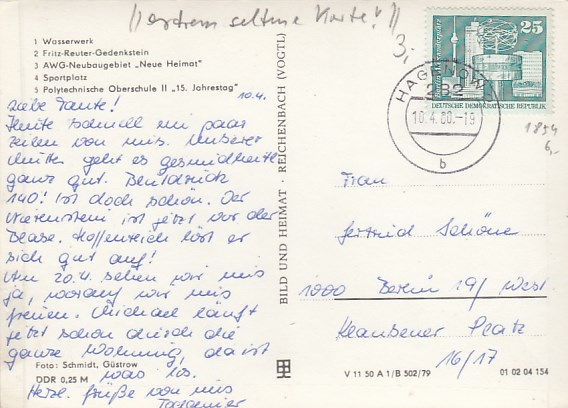 //extrem seltene Karte!//
3,
1 Wasserwerk
2 Fritz-Reuter-Gedenkstein
3 AWG-Neubaugebiet „Neue Heimat"
4 Sportplatz
5 Polytechnische Oberschule II „15. Jahrestag"
10.4.
Liebe Tante!
Heute schnell ein paar
Zeilen von uns. Unserer
Mutter geht es gesundheitl.
ganz gut. Blutdruck
140! Ist doch schön. Der
Nierenstein ist jetzt vor der
Blase. Hoffentlich löst er
sich gut auf!
Am 20.4. sehen wir uns
ja, worauf wir uns
freuen. Michael läuft
jetzt schon durch die
ganze Wohnung, da ist
was los.
Herzl. Grüße von uns
Foto: Schmidt, Güstrow
DDR 0,25 M
BILD UND HEIMAT · REICHENBACH (VOGTL)
25
DEUTSCHE DEMOKRATISCHE REPUBLIK
HAGENOW
282
10.4.80.-19
b
1854
6,-
Frau
Gertrud Schöne
1000 Berlin 19/West
Klausener Platz
16/17
V 11 50 A 1/B 502/79
01 02 04 154